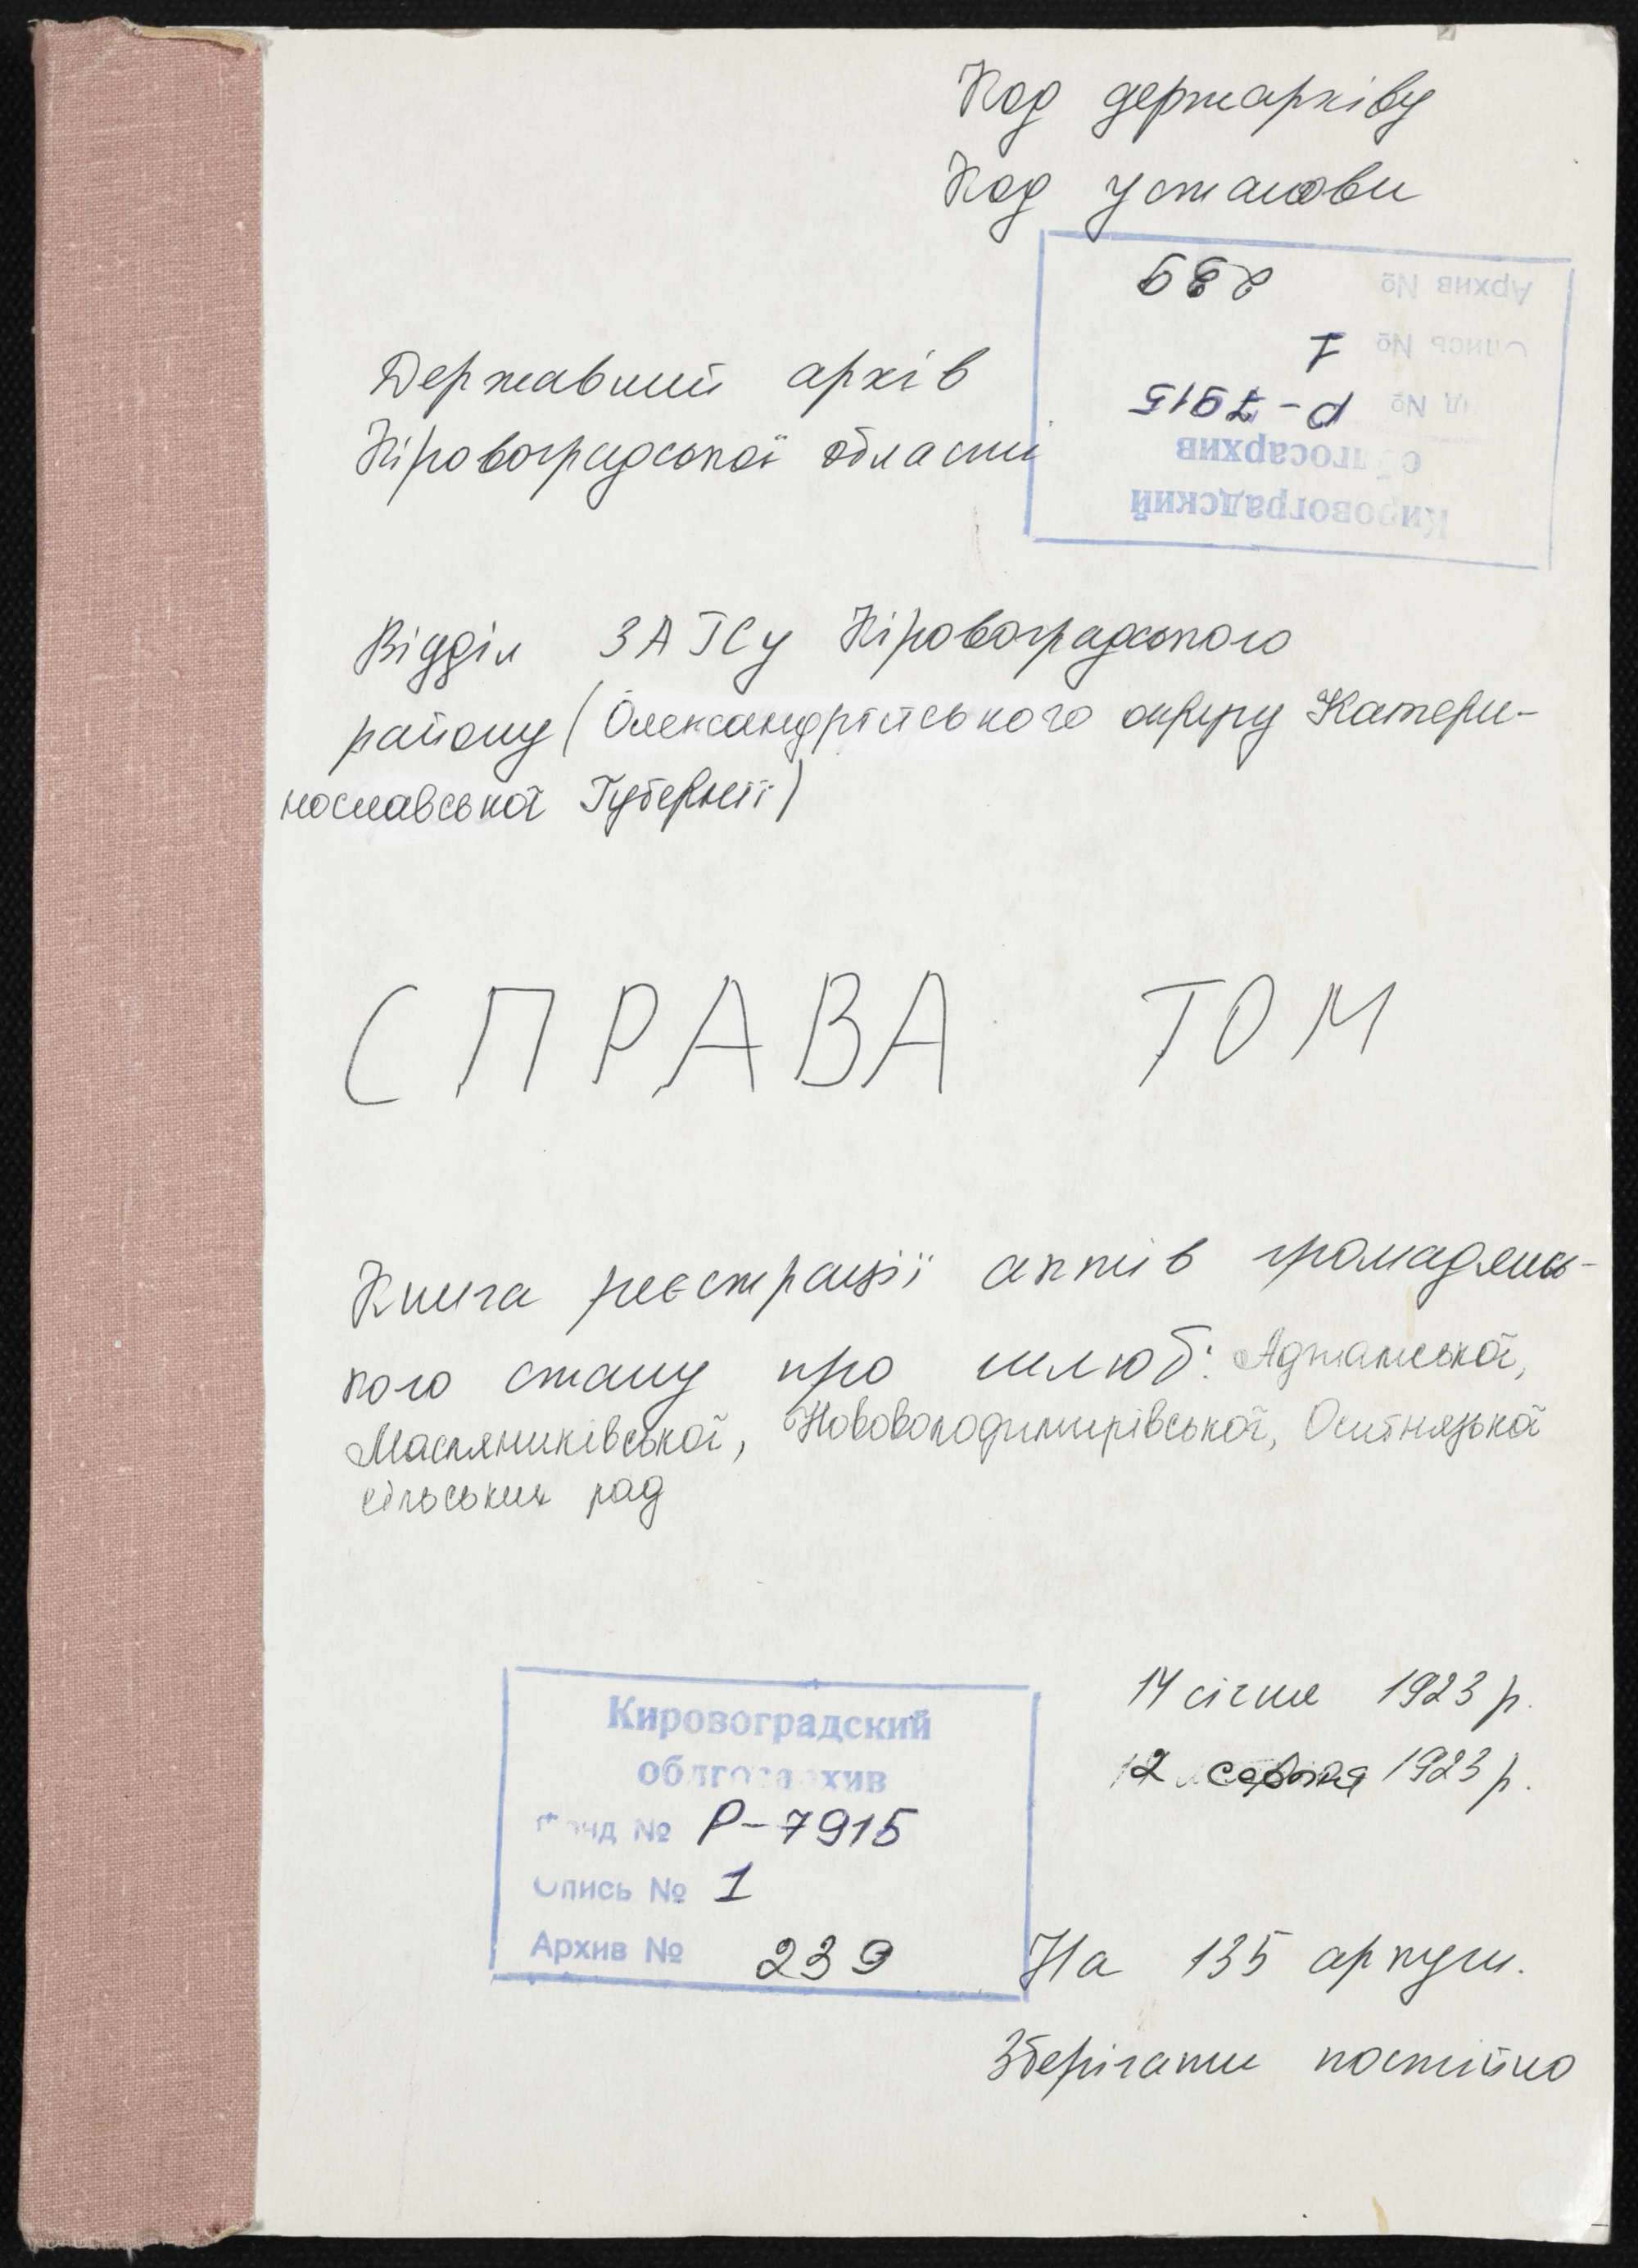 Код держархіву
Код установи
Архив № 239
Опись № 1
Фонд № Р-7915
облгосархив
Кировоградский
Державний архів
Кіровоградської області
Відділ ЗАГСу Кіровоградського
району (Олександрійського округу Катери-
нославської Губернії)
СПРАВА ТОМ
Книга реєстрації актів громадянсь-
кого стану про шлюб: Аджамської,
Масляниківської, Нововолодимирівської, Оситнязької
сільських рад
14 січня 1923 р.
12 серпня 1923 р.
Кировоградский
облгосархив
Фонд № Р-7915
Опись № 1
Архив № 239
На 135 аркуш.
Зберігати постійно